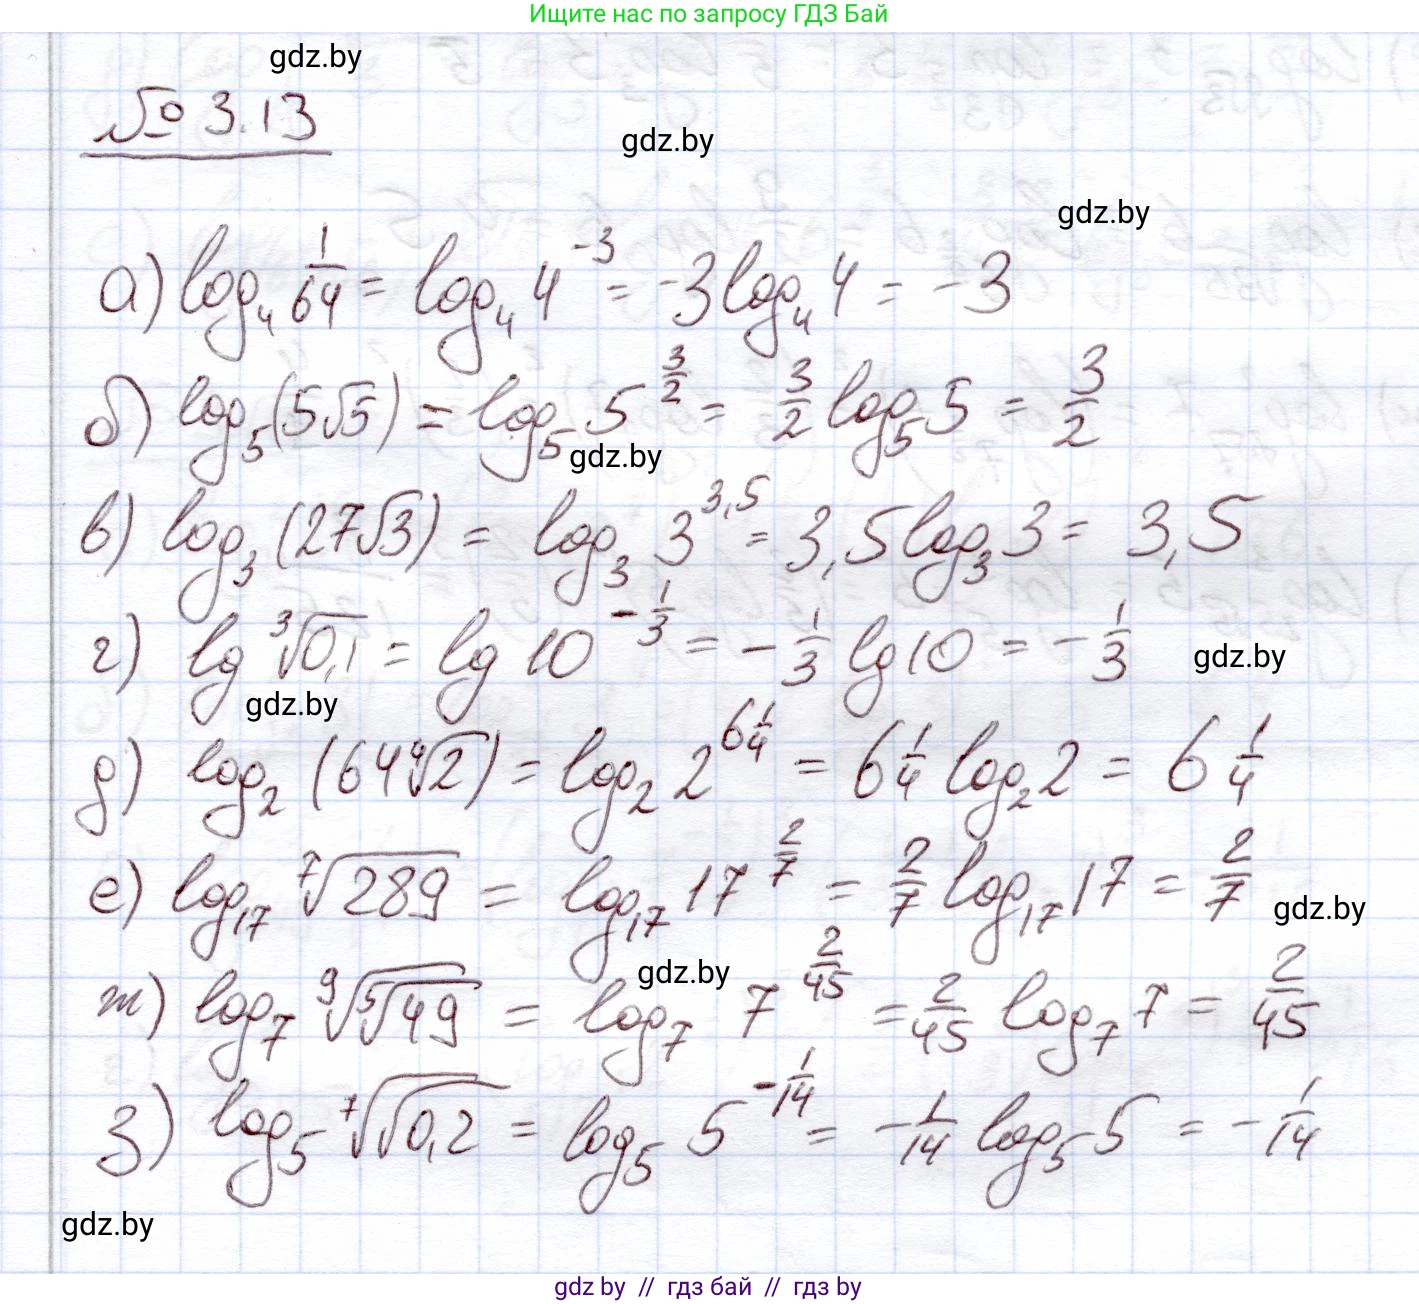 Ищите нас по запросу ГДЗ Бай
gdz.by
№ 3.13
gdz.by
gdz.by
а) log₄ 1/64 = log₄ 4⁻³ = -3 log₄ 4 = -3
б) log₅(5√5) = log₅ 5^(3/2) = 3/2 log₅ 5 = 3/2
gdz.by
в) log₃(27√3) = log₃ 3^(3,5) = 3,5 log₃ 3 = 3,5
г) lg ∛0,1 = lg 10^(-1/3) = -1/3 lg 10 = -1/3
gdz.by
gdz.by
д) log₂(64 ∜2) = log₂ 2^(6 1/4) = 6 1/4 log₂ 2 = 6 1/4
е) log₁₇ ⁷√289 = log₁₇ 17^(2/7) = 2/7 log₁₇ 17 = 2/7
gdz.by
gdz.by
ж) log₇ ⁹√(⁵√49) = log₇ 7^(2/45) = 2/45 log₇ 7 = 2/45
з) log₅ ⁷√(√0,2) = log₅ 5^(-1/14) = -1/14 log₅ 5 = -1/14
gdz.by
gdz.by // гдз бай // гдз by